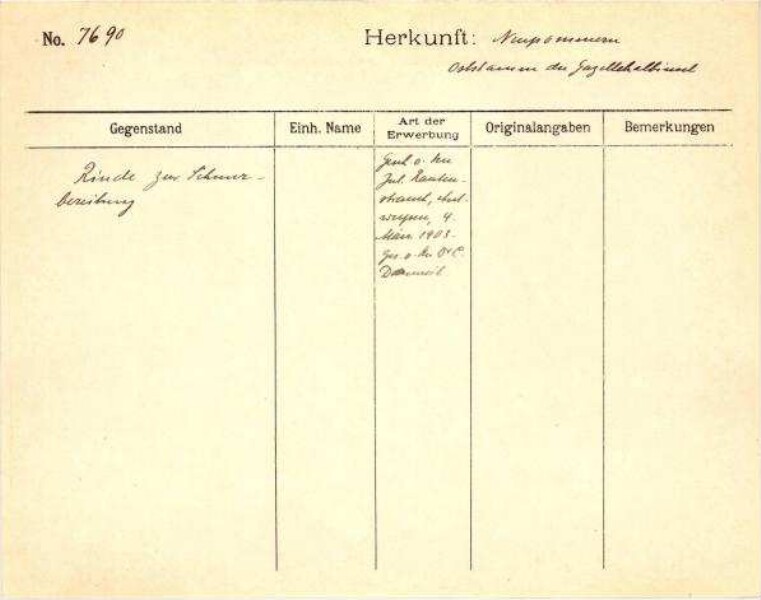 No. 7690
Herkunft: Neupommern
Oststamm der Gazellehalbinsel
Gegenstand
Einh. Name
Art der
Erwerbung
Originalangaben
Bemerkungen
Rinde zur Schnur-
bereitung
Gesch. v. Frau
Jul. Rauten-
strauch,
4.
März 1903.
Ges. v.